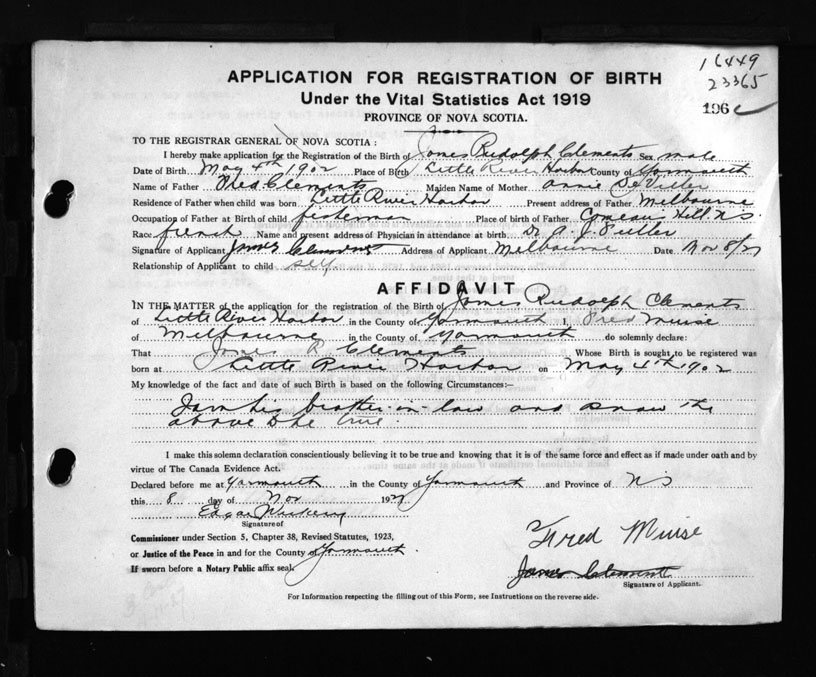 16449
23365
196
APPLICATION FOR REGISTRATION OF BIRTH
Under the Vital Statistics Act 1919
PROVINCE OF NOVA SCOTIA.
TO THE REGISTRAR GENERAL OF NOVA SCOTIA :
I hereby make application for the Registration of the Birth of James Rudolph Clements Sex male
Date of Birth May 4th 1902 Place of Birth Little River Harbor County of Yarmouth
Name of Father Fred Clements Maiden Name of Mother Annie
Residence of Father when child was born Little River Harbor Present address of Father Melbourne
Occupation of Father at Birth of child fisherman Place of birth of Father Comeau Hill N.S.
Race french Name and present address of Physician in attendance at birth Dr A. J. Fuller
Signature of Applicant James Address of Applicant Melbourne Date Nov 8/27
Relationship of Applicant to child self
AFFIDAVIT
IN THE MATTER of the application for the registration of the Birth of James Rudolph Clements
of Little River Harbor in the County of Yarmouth I, Fred Muise
of Melbourne in the County of Yarmouth do solemnly declare:
That James R Clements Whose Birth is sought to be registered was
born at Little River Harbor on May 4th 1902
My knowledge of the fact and date of such Birth is based on the following Circumstances:—
I am his brother-in-law and know the
above to be true.
I make this solemn declaration conscientiously believing it to be true and knowing that it is of the same force and effect as if made under oath and by
virtue of The Canada Evidence Act.
Declared before me at Yarmouth in the County of Yarmouth and Province of NS
this 8 day of Nov 1927
Edgar
Signature of
Commissioner under Section 5, Chapter 38, Revised Statutes, 1923,
or Justice of the Peace in and for the County of Yarmouth.
If sworn before a Notary Public affix seal.
Fred Muise
James Clements
Signature of Applicant.
For Information respecting the filling out of this Form, see Instructions on the reverse side.